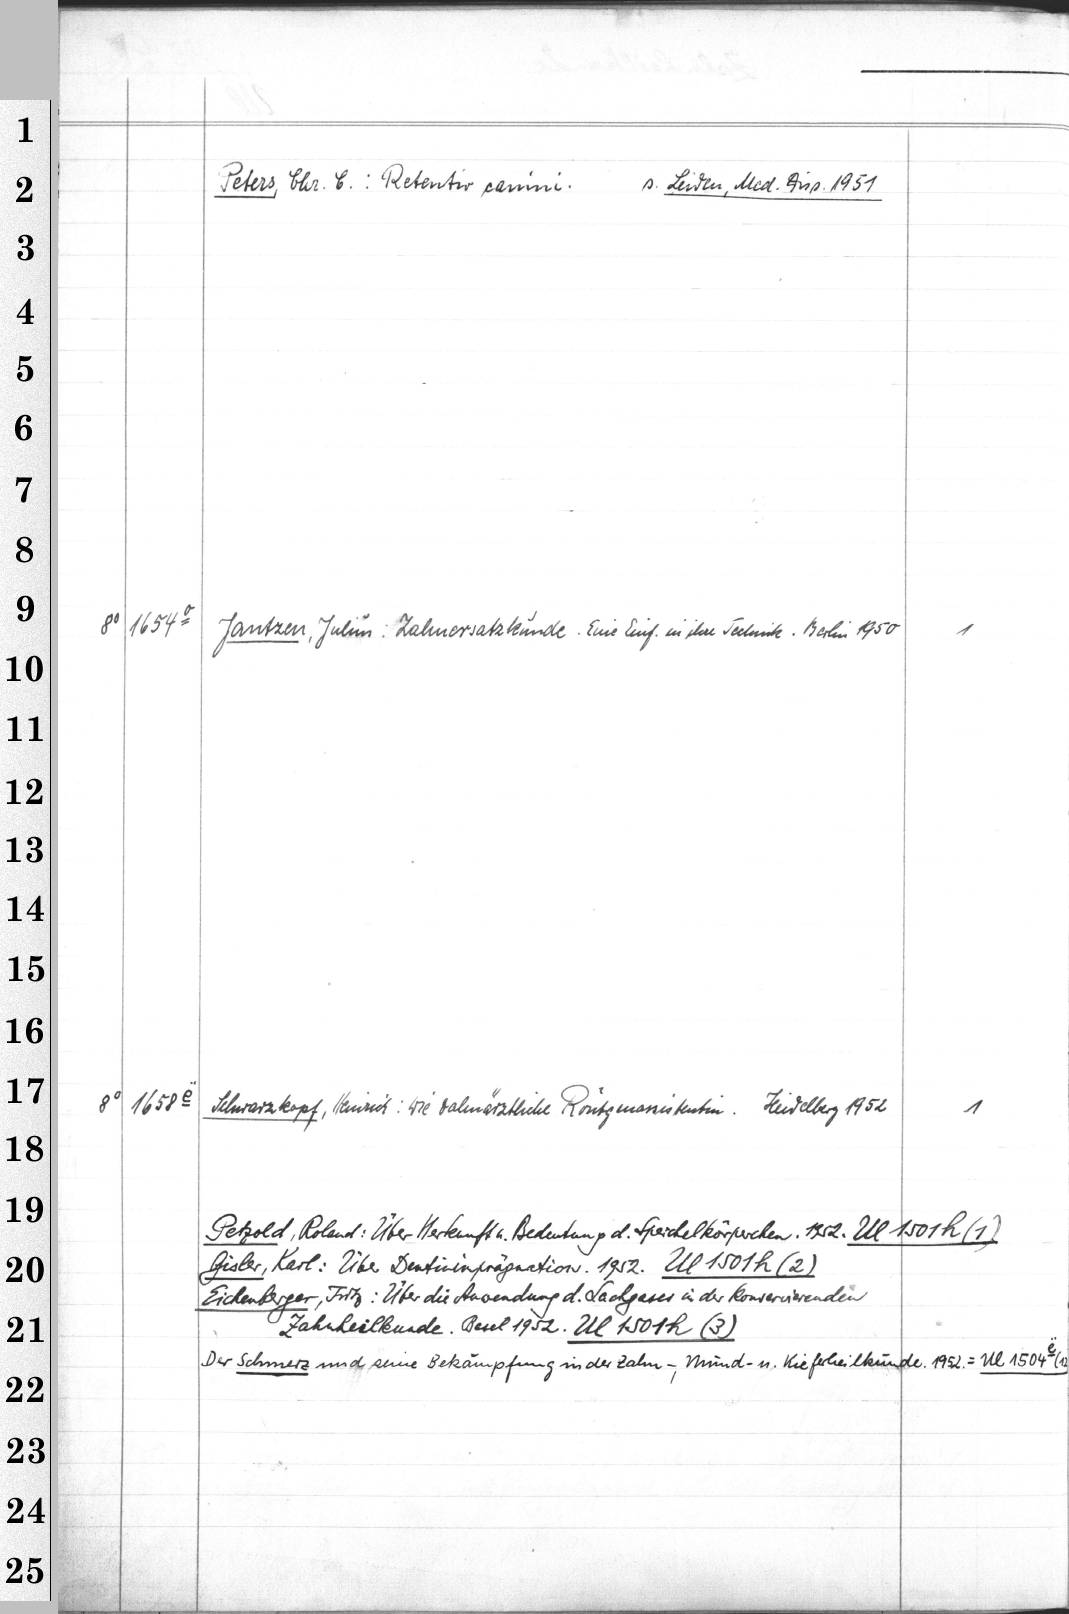 1
2 Peters, Chr. C. : Retentio canini. s. Leiden, Med. Diss. 1951
3
4
5
6
7
8
9 8° 1654 Jantzen, Julius : Zahnersatzkunde . Eine Einf. in ihre Technik . Berlin 1950 1
10
11
12
13
14
15
16
17 8° 1658 ë Schwarzkopf, Heinrich : Die zahnärztliche Röntgenassistentin . Heidelberg 1952 1
18
19 Petzold, Roland : Über Herkunft u. Bedeutung d. Speichelkörperchen . 1952. Ul 1501h (1)
20 Gisler, Karl : Über Dentinimprägnation . 1952. Ul 1501h (2)
Eichenberger, Fritz : Über die Anwendung d. Lachgases in der konservierenden
21 Zahnheilkunde . Basel 1952. Ul 1501h (3)
Der Schmerz und seine Bekämpfung in der Zahn-, Mund- u. Kieferheilkunde. 1952. = Ul 1504 ë (12
22
23
24
25